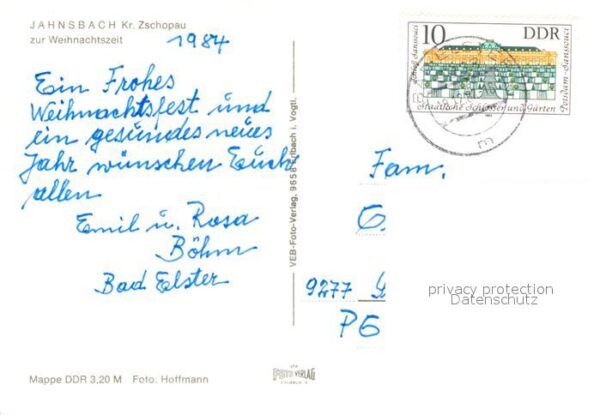 JAHNSBACH Kr. Zschopau
zur Weihnachtszeit
1984
Ein Frohes
Weihnachtsfest und
ein gesundes neues
Jahr wünschen Euch
allen
Emil u. Rosa
Böhm
Bad Elster
Mappe DDR 3,20 M Foto: Hoffmann
VEB-Foto-Verlag, 9658 Erlbach i. Vogtl.
10 DDR
Schloß Sanssouci
Staatliche Schlösser und Gärten
Potsdam-Sanssouci
Fam.
G.
9277 G
PG
privacy protection
Datenschutz
FOTO VERLAG